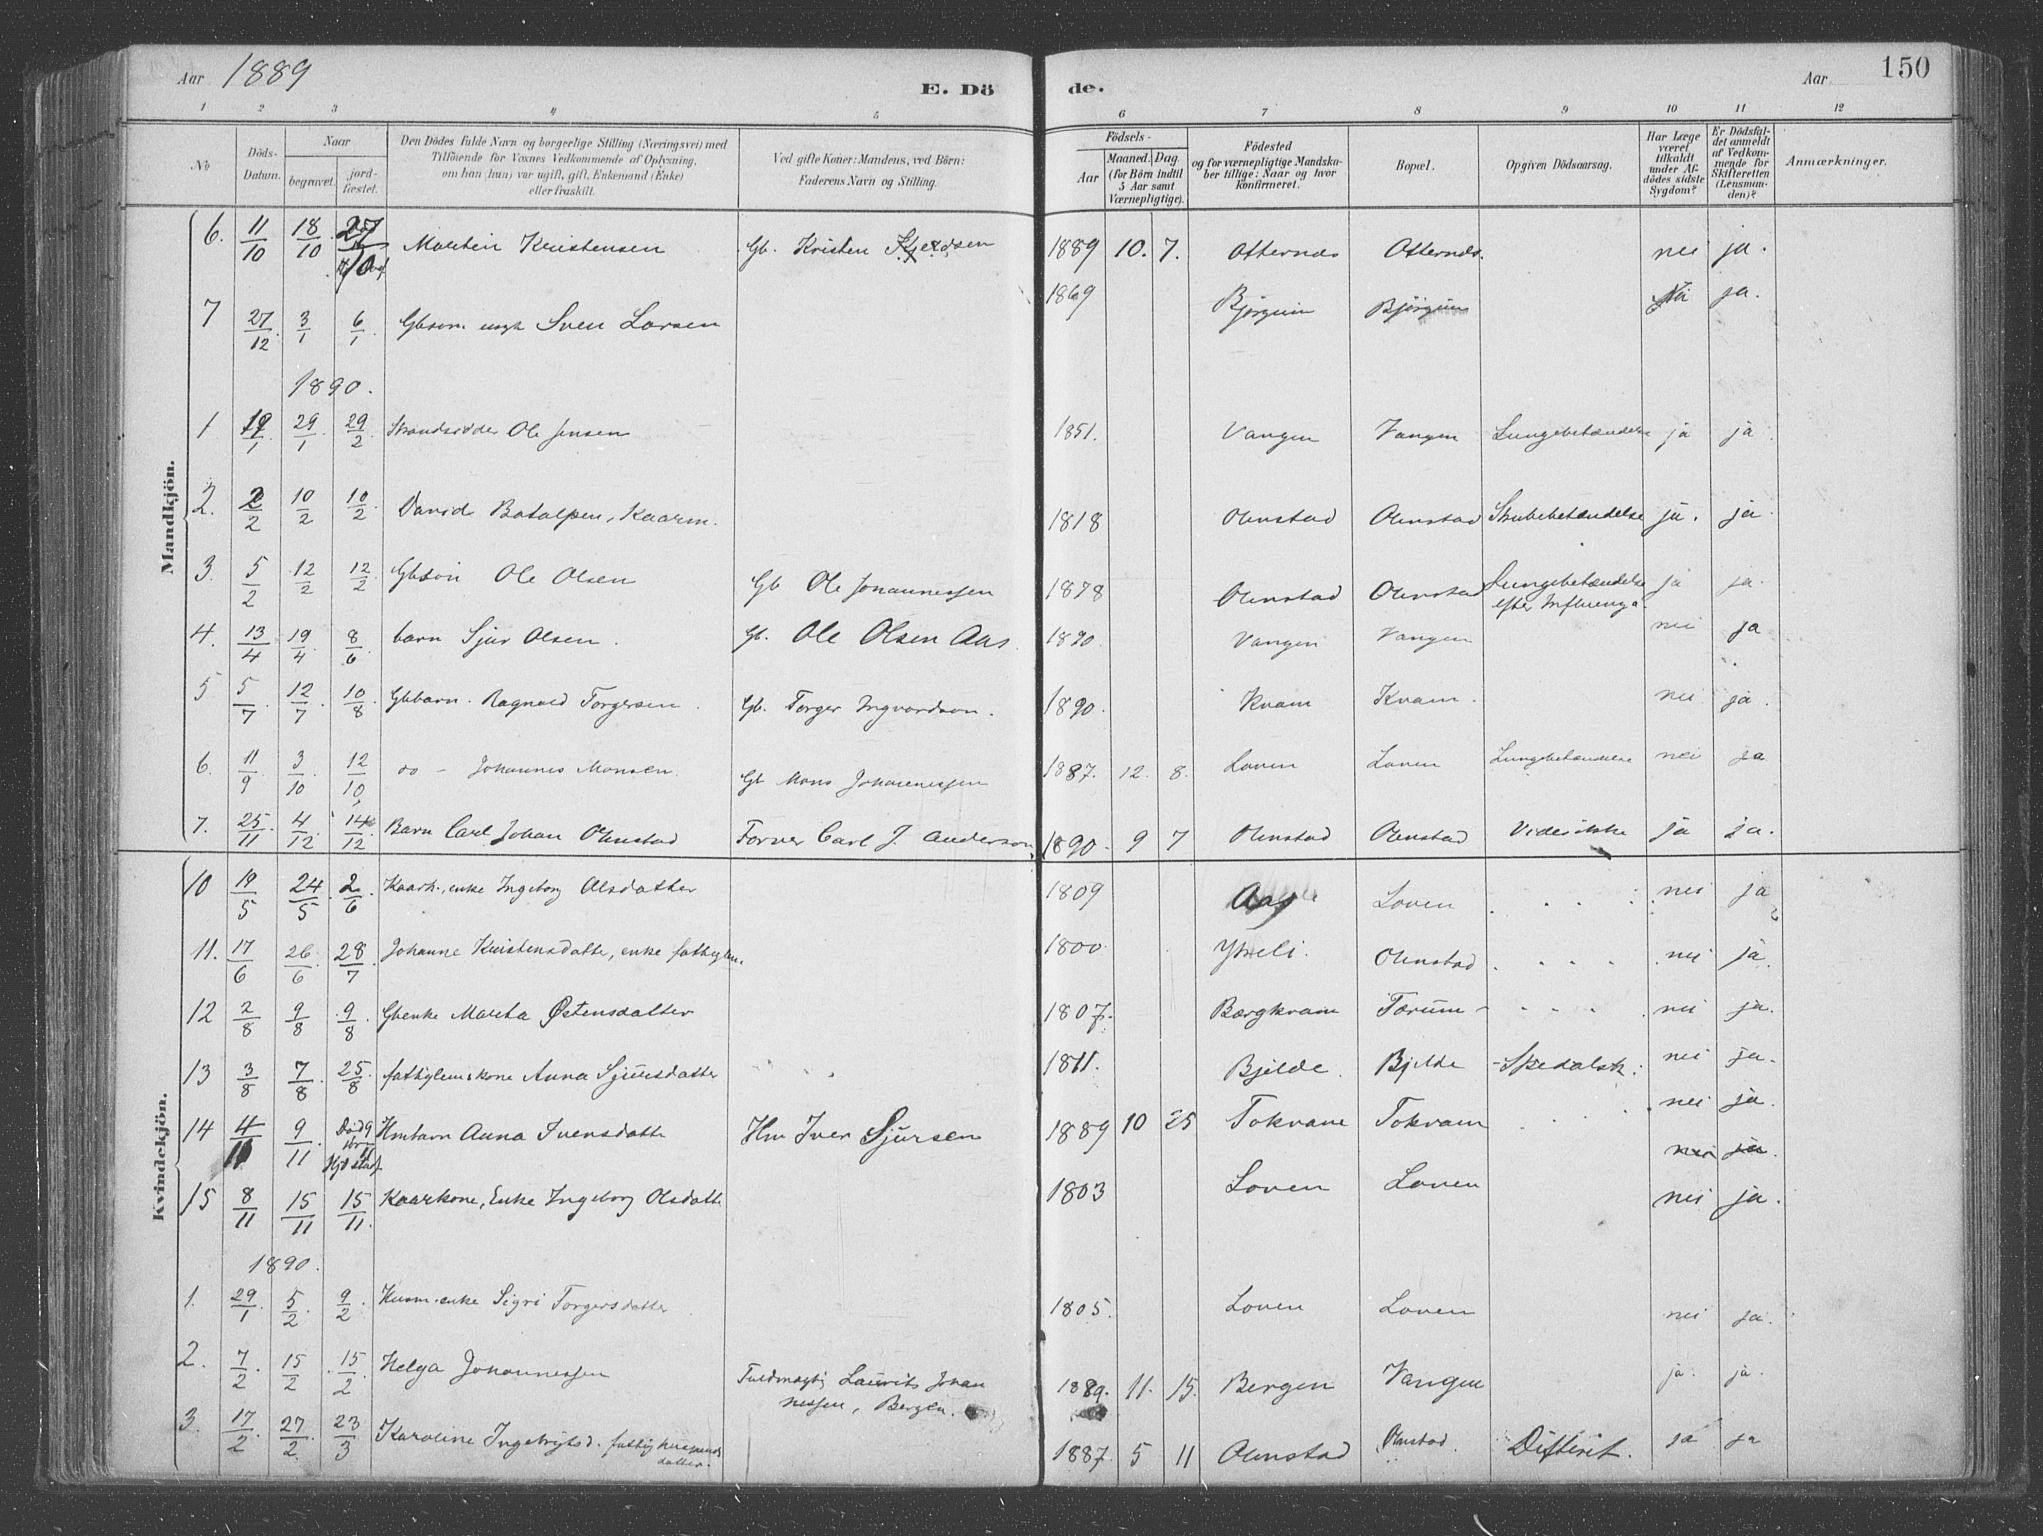 Aar 1889 E. Dö de. Aar 150
1 2 3 4 5 6 7 8 9 10 11 12
No Döds-Datum. Naar begravet. jordfæstet. Den Dödes fulde Navn og borgerlige Stilling (Næringsvei) med Tilföiende for Voxnes Vedkommende af Oplysning, om han (hun) var ugift, gift, Enkemand (Enke) eller fraskilt. Ved gifte Koner: Mandens, ved Börn: Faderens Navn og Stilling. Födsels- Aar Maaned. Dag. (for Börn indtil 5 Aar samt Værnepligtige). Födested og for værnepligtige Mandskaber tillige: Naar og hvor konfirmeret. Bopæl. Opgiven Dödsaarsag. Har Læge været tilkaldt under Afdödes sidste Sygdom? Er Dödsfaldet anmeldt af Vedkommende for Skifteretten (Lensmanden)? Anmærkninger.
Mandkjön.
6. 11/10 18/10 Martin Kristensen Gb. Kristen 1889 10. 7. Otternæs Otternæs. nei ja.
7 27/12 3/1 6/1 Gbsøn ugft Sven Larsen 1869 Bjørgum Bjørgum Nei ja.
1890.
1 19/1 29/1. 29/2. Strandsidder Ole Jensen 1851. Vangen Vangen Lungebetændelse ja ja.
2. 2/2 10/2 10/2. David Botolfsen, Kaarm. 1818 Ohnstad Ohnstad Strubebetændelse ja. ja.
3. 5/2 12/2 12/2. Gbsøn Ole Olsen Gb Ole Johannessen 1878 Ohnstad Ohnstad Lungebetændelse efter Influenza. ja ja.
4. 13/4 19/4 8/6 barn Sjur Olsen. Gb. Ole Olsen Aas. 1890. Vangen Vangen nei ja.
5 5/7. 12/7. 10/8 Gbbarn. Ragnvald Torgersen. Gb. Torger Ingvardson. 1890. Kvam Kvam. nei ja.
6. 11/9 3/10. 12/10 do - Johannes Monsen. Gb Mons Johannessen 1887. 12. 8. Loven Loven Lungebetændelse nei ja
7. 25/11. 4/12. 14/12. Barn Carl Johan Ohnstad Farver Carl J. Anderson, 1890. 9 7 Ohnstad Ohnstad Vides ikke ja ja.
Kvindekjön.
10 19/5 24/5. 2/6. Kaark., enke Ingeborg Olsdatter 1809 Aas Loven nei ja
11. 17/6 26/6. 28/7. Johanne Kristensdatter, enke fattiglem. 1800. Ytreli. Ohnstad nei ja.
12 2/8 9/8 9/8 Gbenke Marita Østensdatter 1807. Bærgkvam Tærum nei ja.
13 3/8 7/8. 25/8. fattiglemskone Anna Sjursdatter 1811. Bjelde. Bjelde Spedalsk. nei ja.
14 4/11 9/11. Hmbarn Anna Iversdatter Hm Iver Sjursen 1889 10 25 Tokvam Tokvam nei ja.
nei ja.
15 8/11 15/11 15/11. Kaarkone, Enke Ingeborg Olsdatter 1803 Loven Loven nei ja.
1890.
1. 29/1. 5/2. 9/2. Husm.enke Sigri Torgersdatter 1805. Loven Loven nei ja.
2. 7/2. 15/2 15/2. Helga Johannessen Fuldmægtig Laurits Johannessen, Bergen. 1889. 11. 15. Bergen Vangen ja. ja.
3. 17/2. 27/2. 23/3 Karoline Ingebrigtsd. fattig husmands datter. 1887. 5 11 Ohnstad Ohnstad. Difterit. ja ja